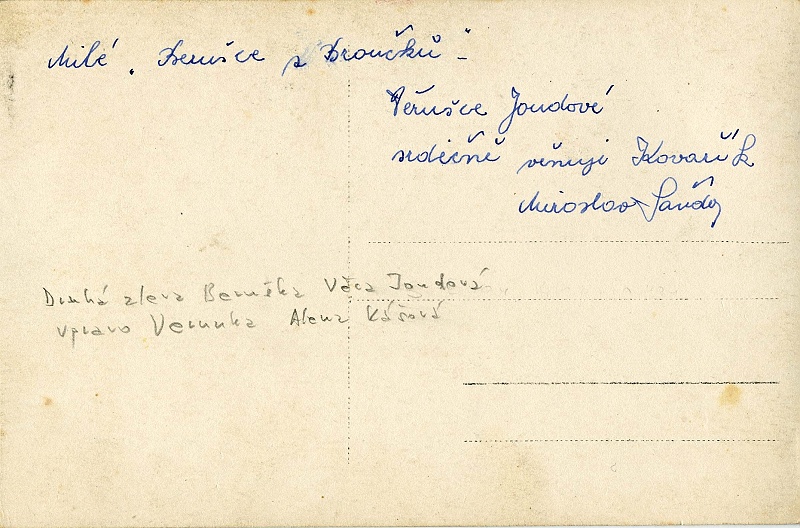 Milé „Berušce z Broučků"
Věrušce Joudové
srdečně věnuji Kovařík
Miroslav
Druhá zleva Beruška Věra Joudová
vpravo Verunka Alena Kášová